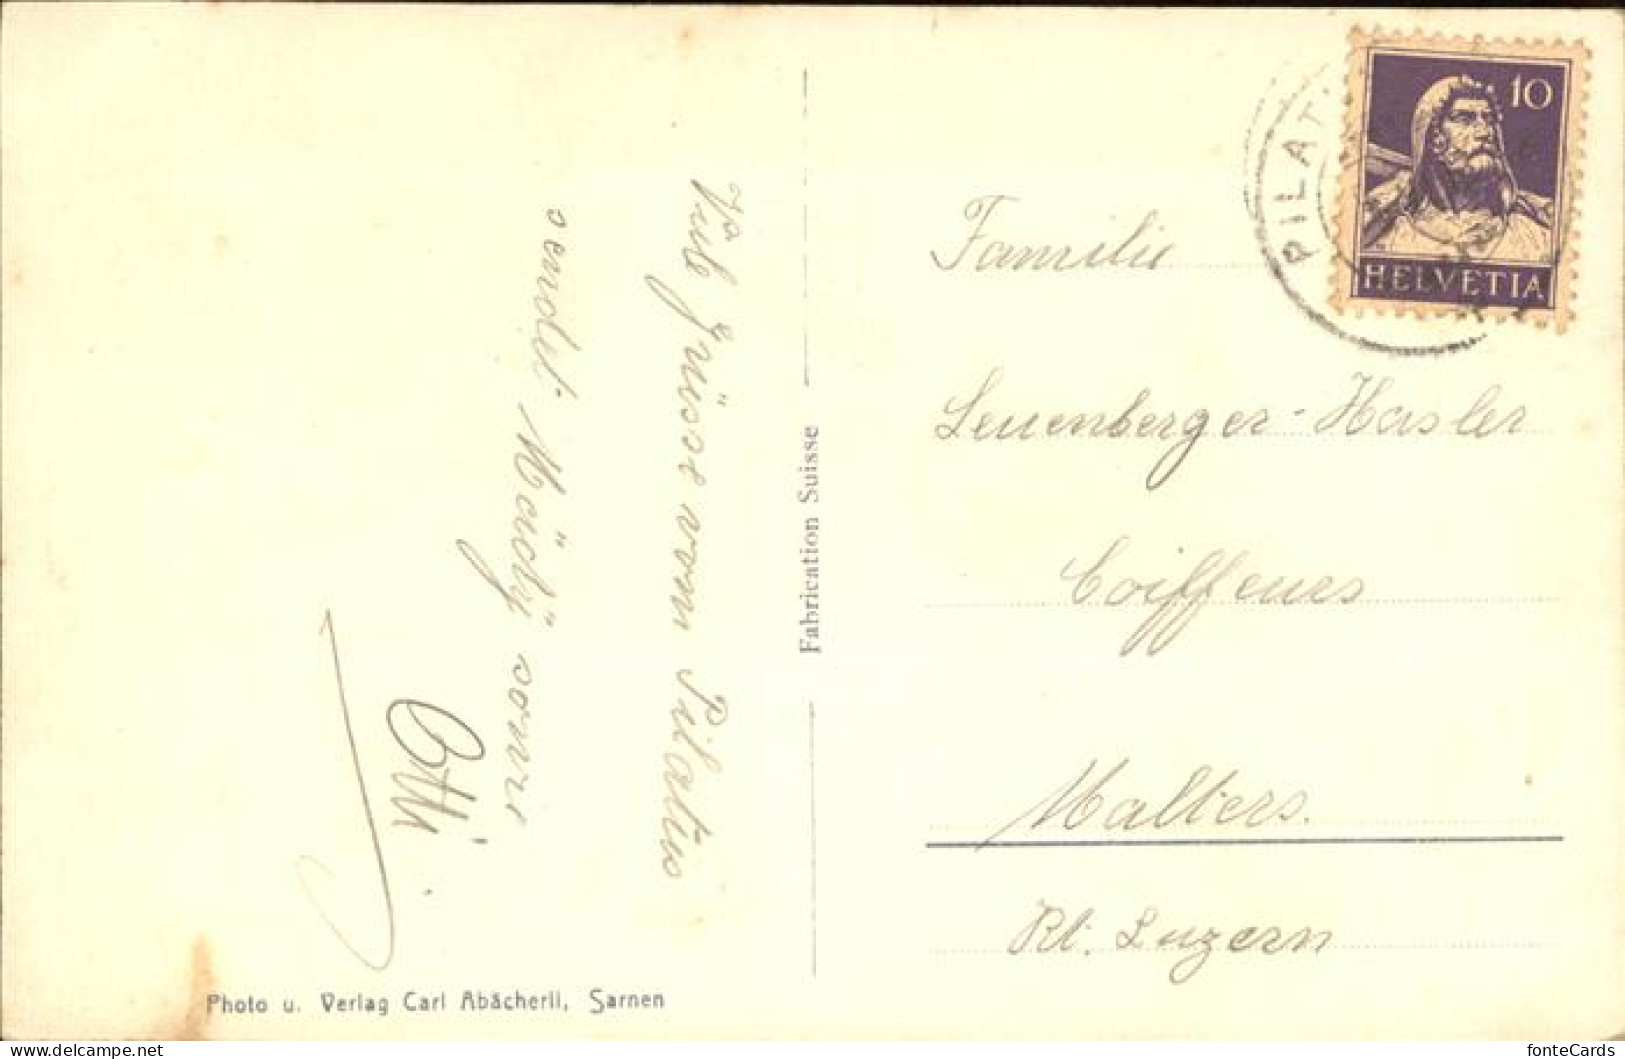 Viele Grüsse vom Pilatus
sendet
Otti
Fabrication Suisse
Photo u. Verlag Carl Abächerli, Sarnen
PILAT
10
HELVETIA
Familie
Leuenberger-Hasler
Coiffeurs
Malters.
Kt. Luzern
delcampe.net
fonteCards